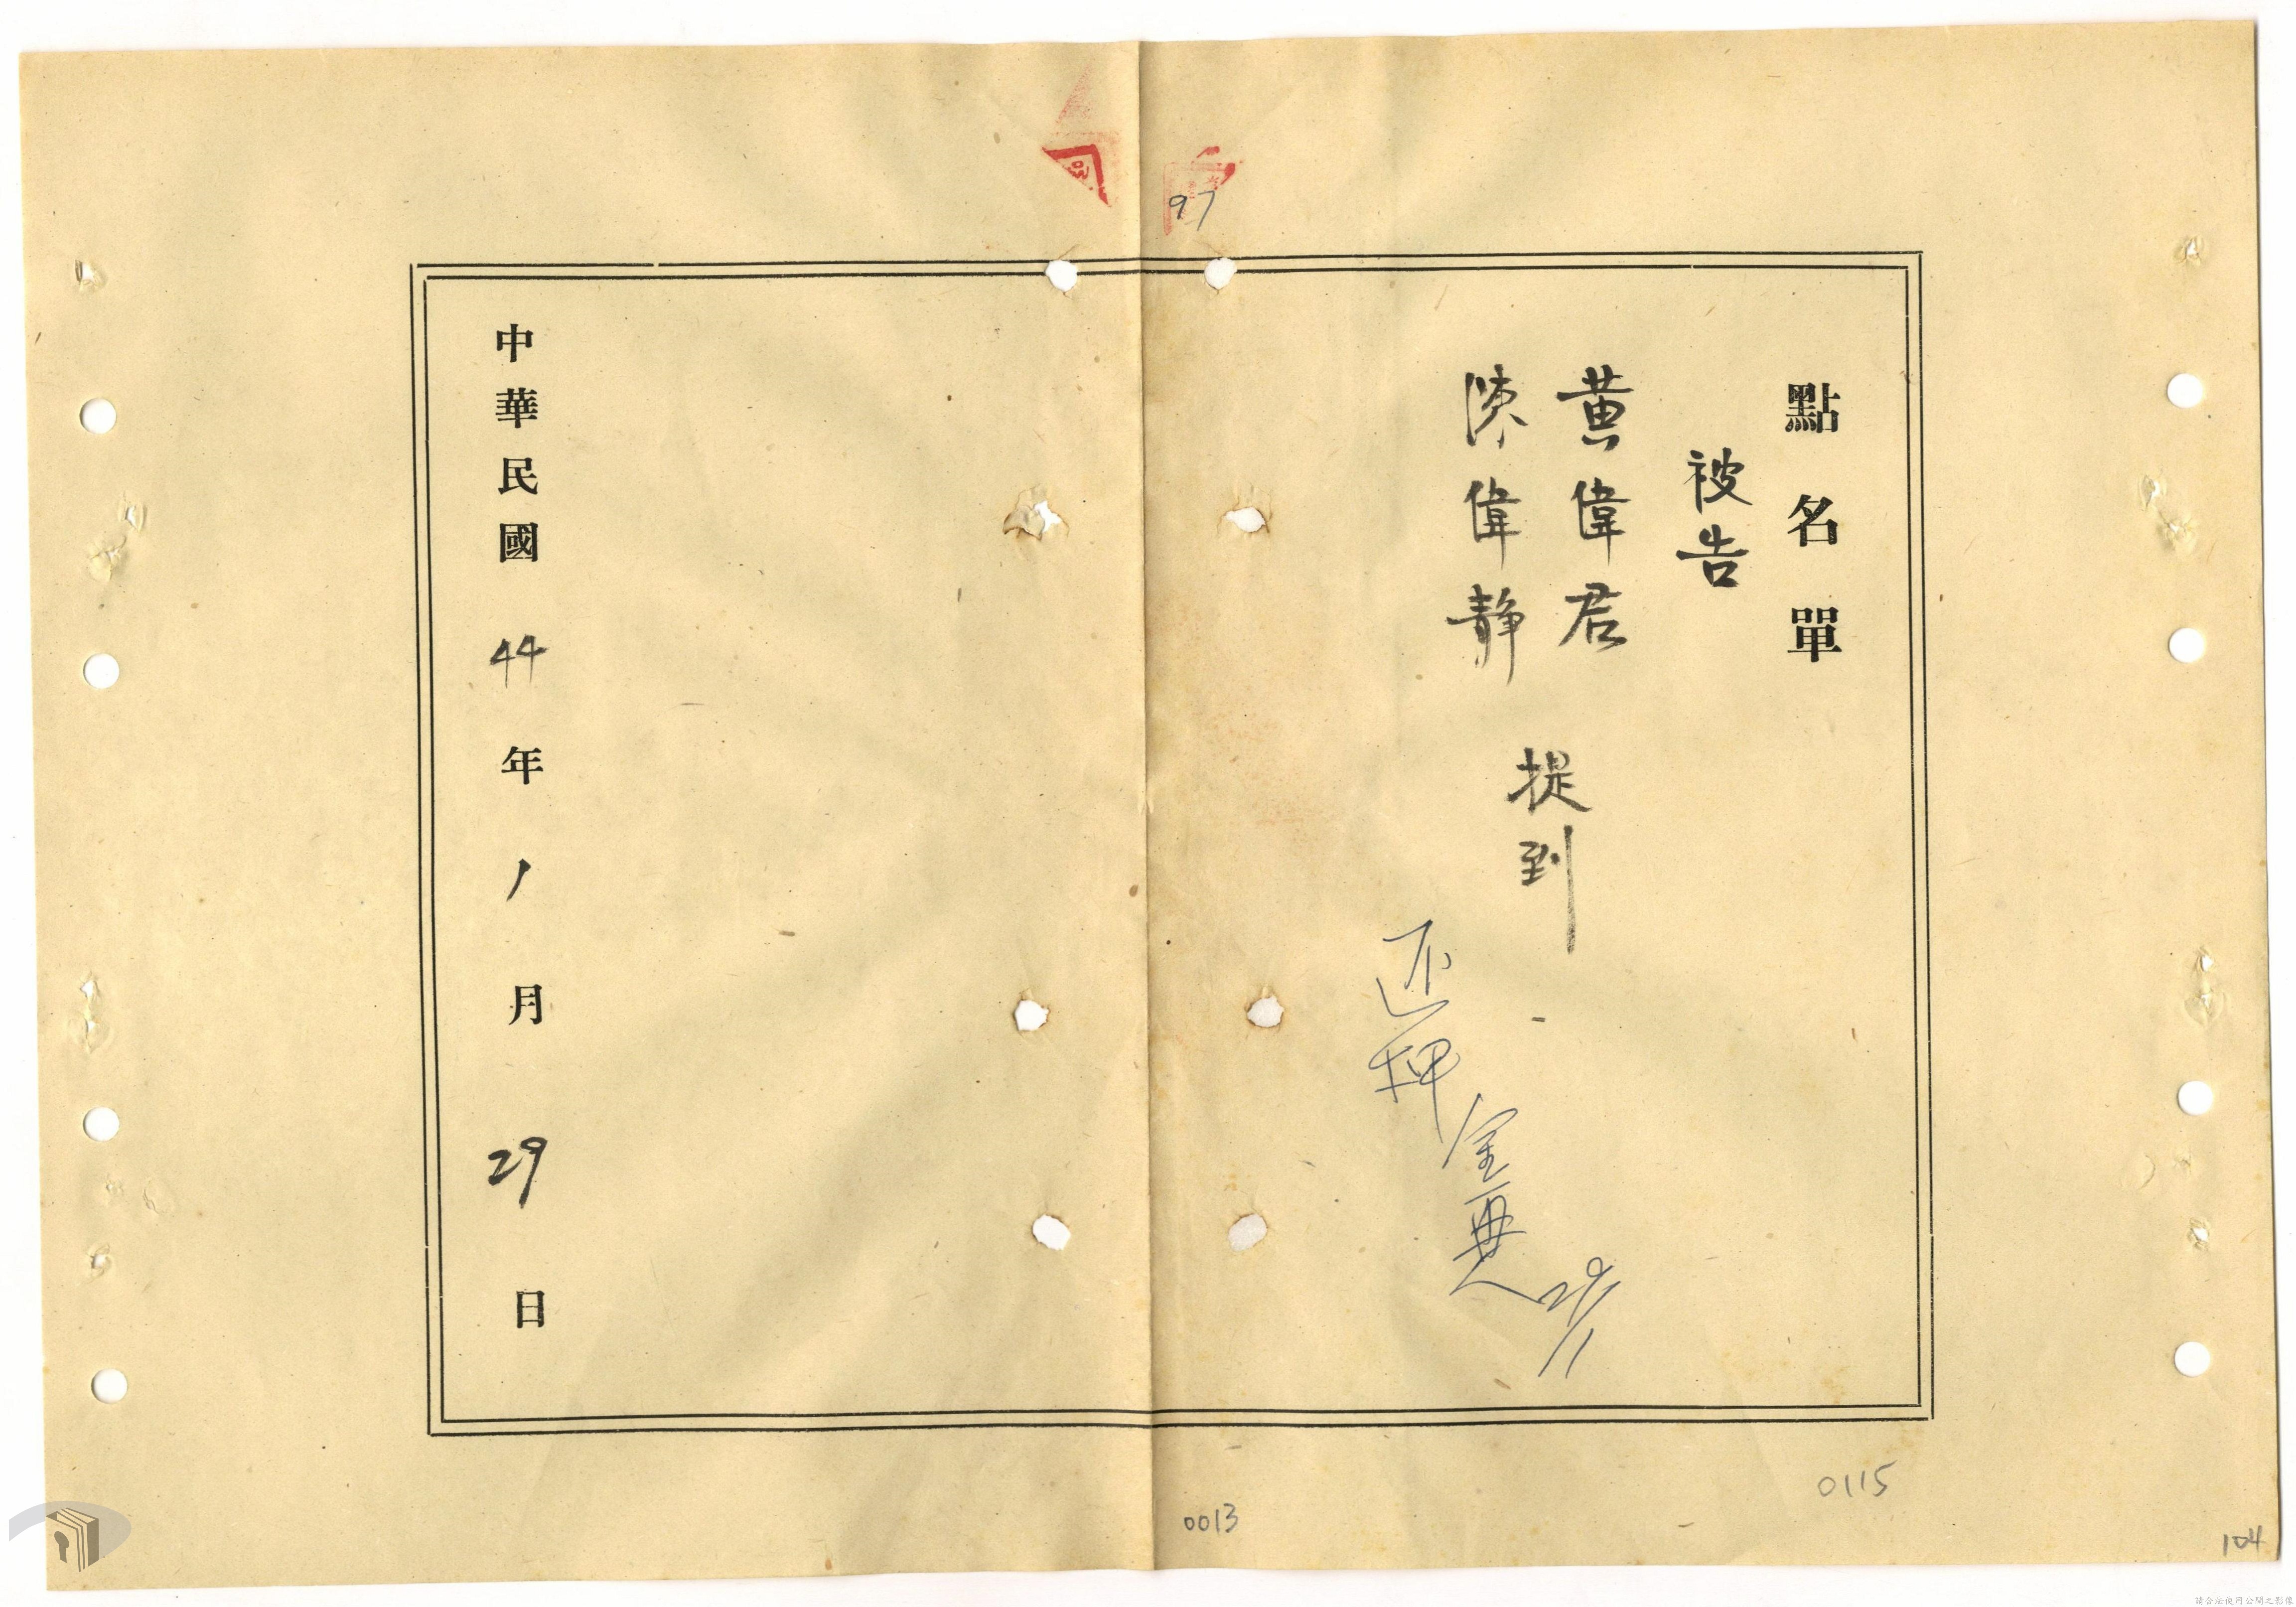 點名單
被告
黄偉君
陳偉静
提到
还押
29/1
中華民國44年1月29日
97
0013
0115
104
請合法使用公開之影像